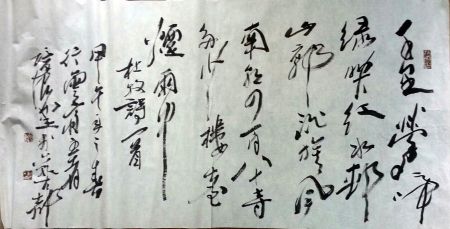 千里鶯啼
绿映红水邨
山郭酒旗风
南朝四百八十寺
多少樓台
煙雨中
杜牧詩一首
甲午年之春